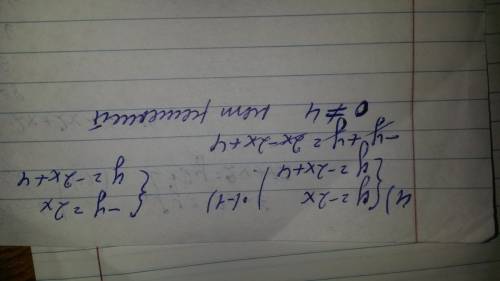 4) { y = -2x | ·(-1) { -y = 2x
{ y = -2x+4 { y = -2x+4
-y+y = 2x-2x+4
0 ≠ 4 нет решений